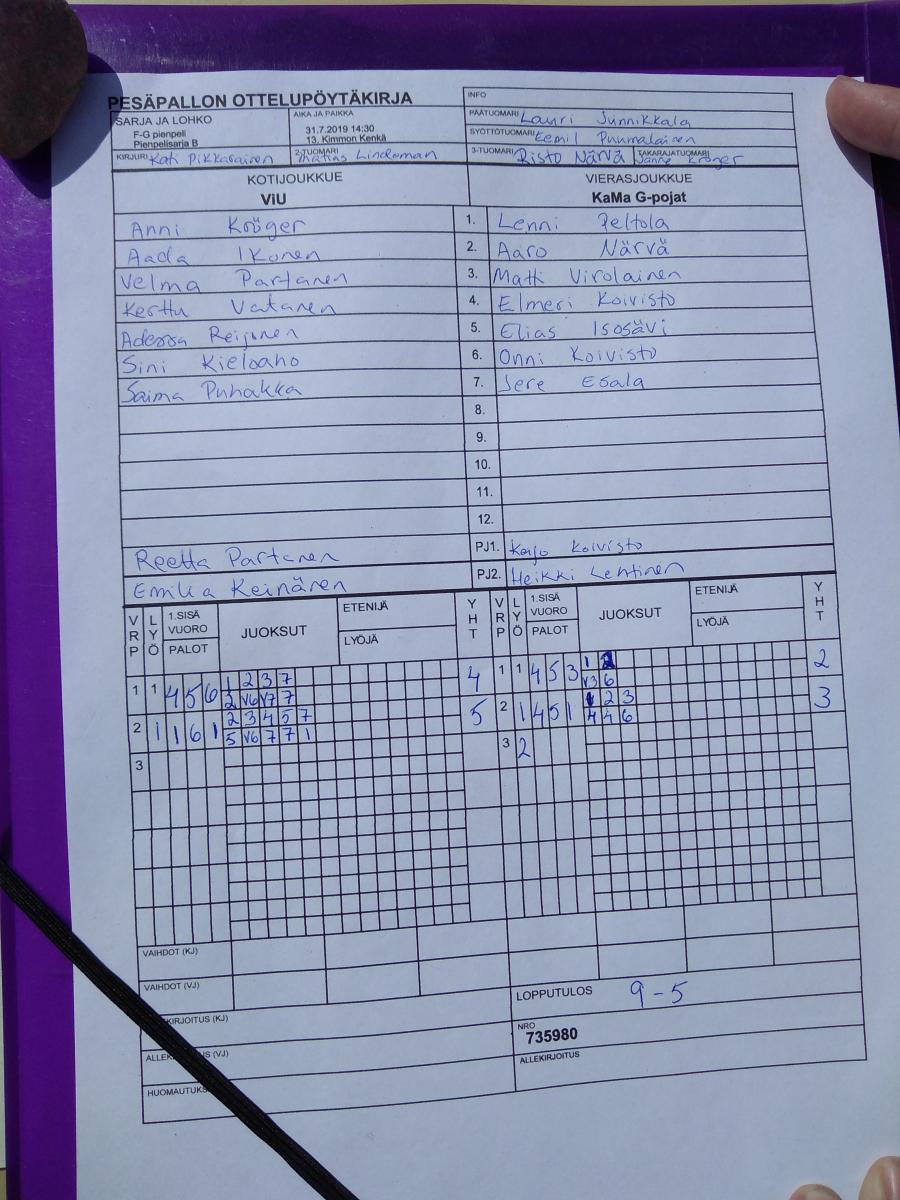 PESÄPALLON OTTELUPÖYTÄKIRJA
INFO
SARJA JA LOHKO
F-G pienpeli
Pienpelisarja B
AIKA JA PAIKKA
31.7.2019 14:30
13. Kimmon Kenkä
PÄÄTUOMARI Lauri Junnikkala
SYÖTTÖTUOMARI Eemil Puumalainen
KIRJURI Kati Pikkarainen
2-TUOMARI Matias Lindeman
3-TUOMARI Risto Närvä
TAKARAJATUOMARI Janne Kröger
KOTIJOUKKUE
ViU
VIERASJOUKKUE
KaMa G-pojat
Anni Kröger 1. Lenni Peltola
Aada Ikonen 2. Aaro Närvä
Velma Partanen 3. Matti Virolainen
Kerttu Vatanen 4. Elmeri Koivisto
Adessa Reijonen 5. Elias Isosävi
Sini Kieloaho 6. Onni Koivisto
Saima Puhakka 7. Jere Esala
8.
9.
10.
11.
12.
Reetta Partanen PJ1. Koivisto
Emilia Keinänen PJ2. Heikki Lehtinen
VRP LYÖ 1.SISÄ VUORO PALOT JUOKSUT ETENIJÄ LYÖJÄ YHT VRP LYÖ 1.SISÄ VUORO PALOT JUOKSUT ETENIJÄ LYÖJÄ YHT
1 1 4 5 6 1 2 3 7 4 1 1 4 5 3 1 2 2
2 V6 V7 7 V3 6
2 1 1 6 1 2 3 4 5 7 5 2 1 4 5 1 1 2 3 3
5 V6 7 7 1 4 4 6
3 3 2
VAIHDOT (KJ)
VAIHDOT (VJ)
LOPPUTULOS 9-5
KIRJOITUS (KJ)
NRO
735980
ALLEK US (VJ)
ALLEKIRJOITUS
HUOMAUTUKS